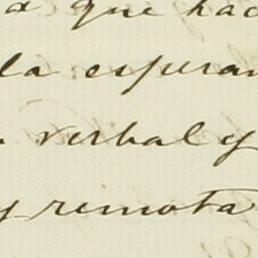 que hac
la esperan
verbal y
y remota